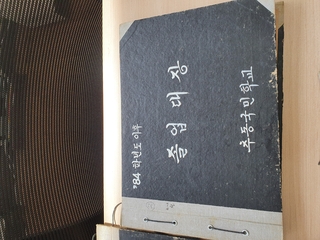 '84 학년도 이후
졸업대장
추동국민학교